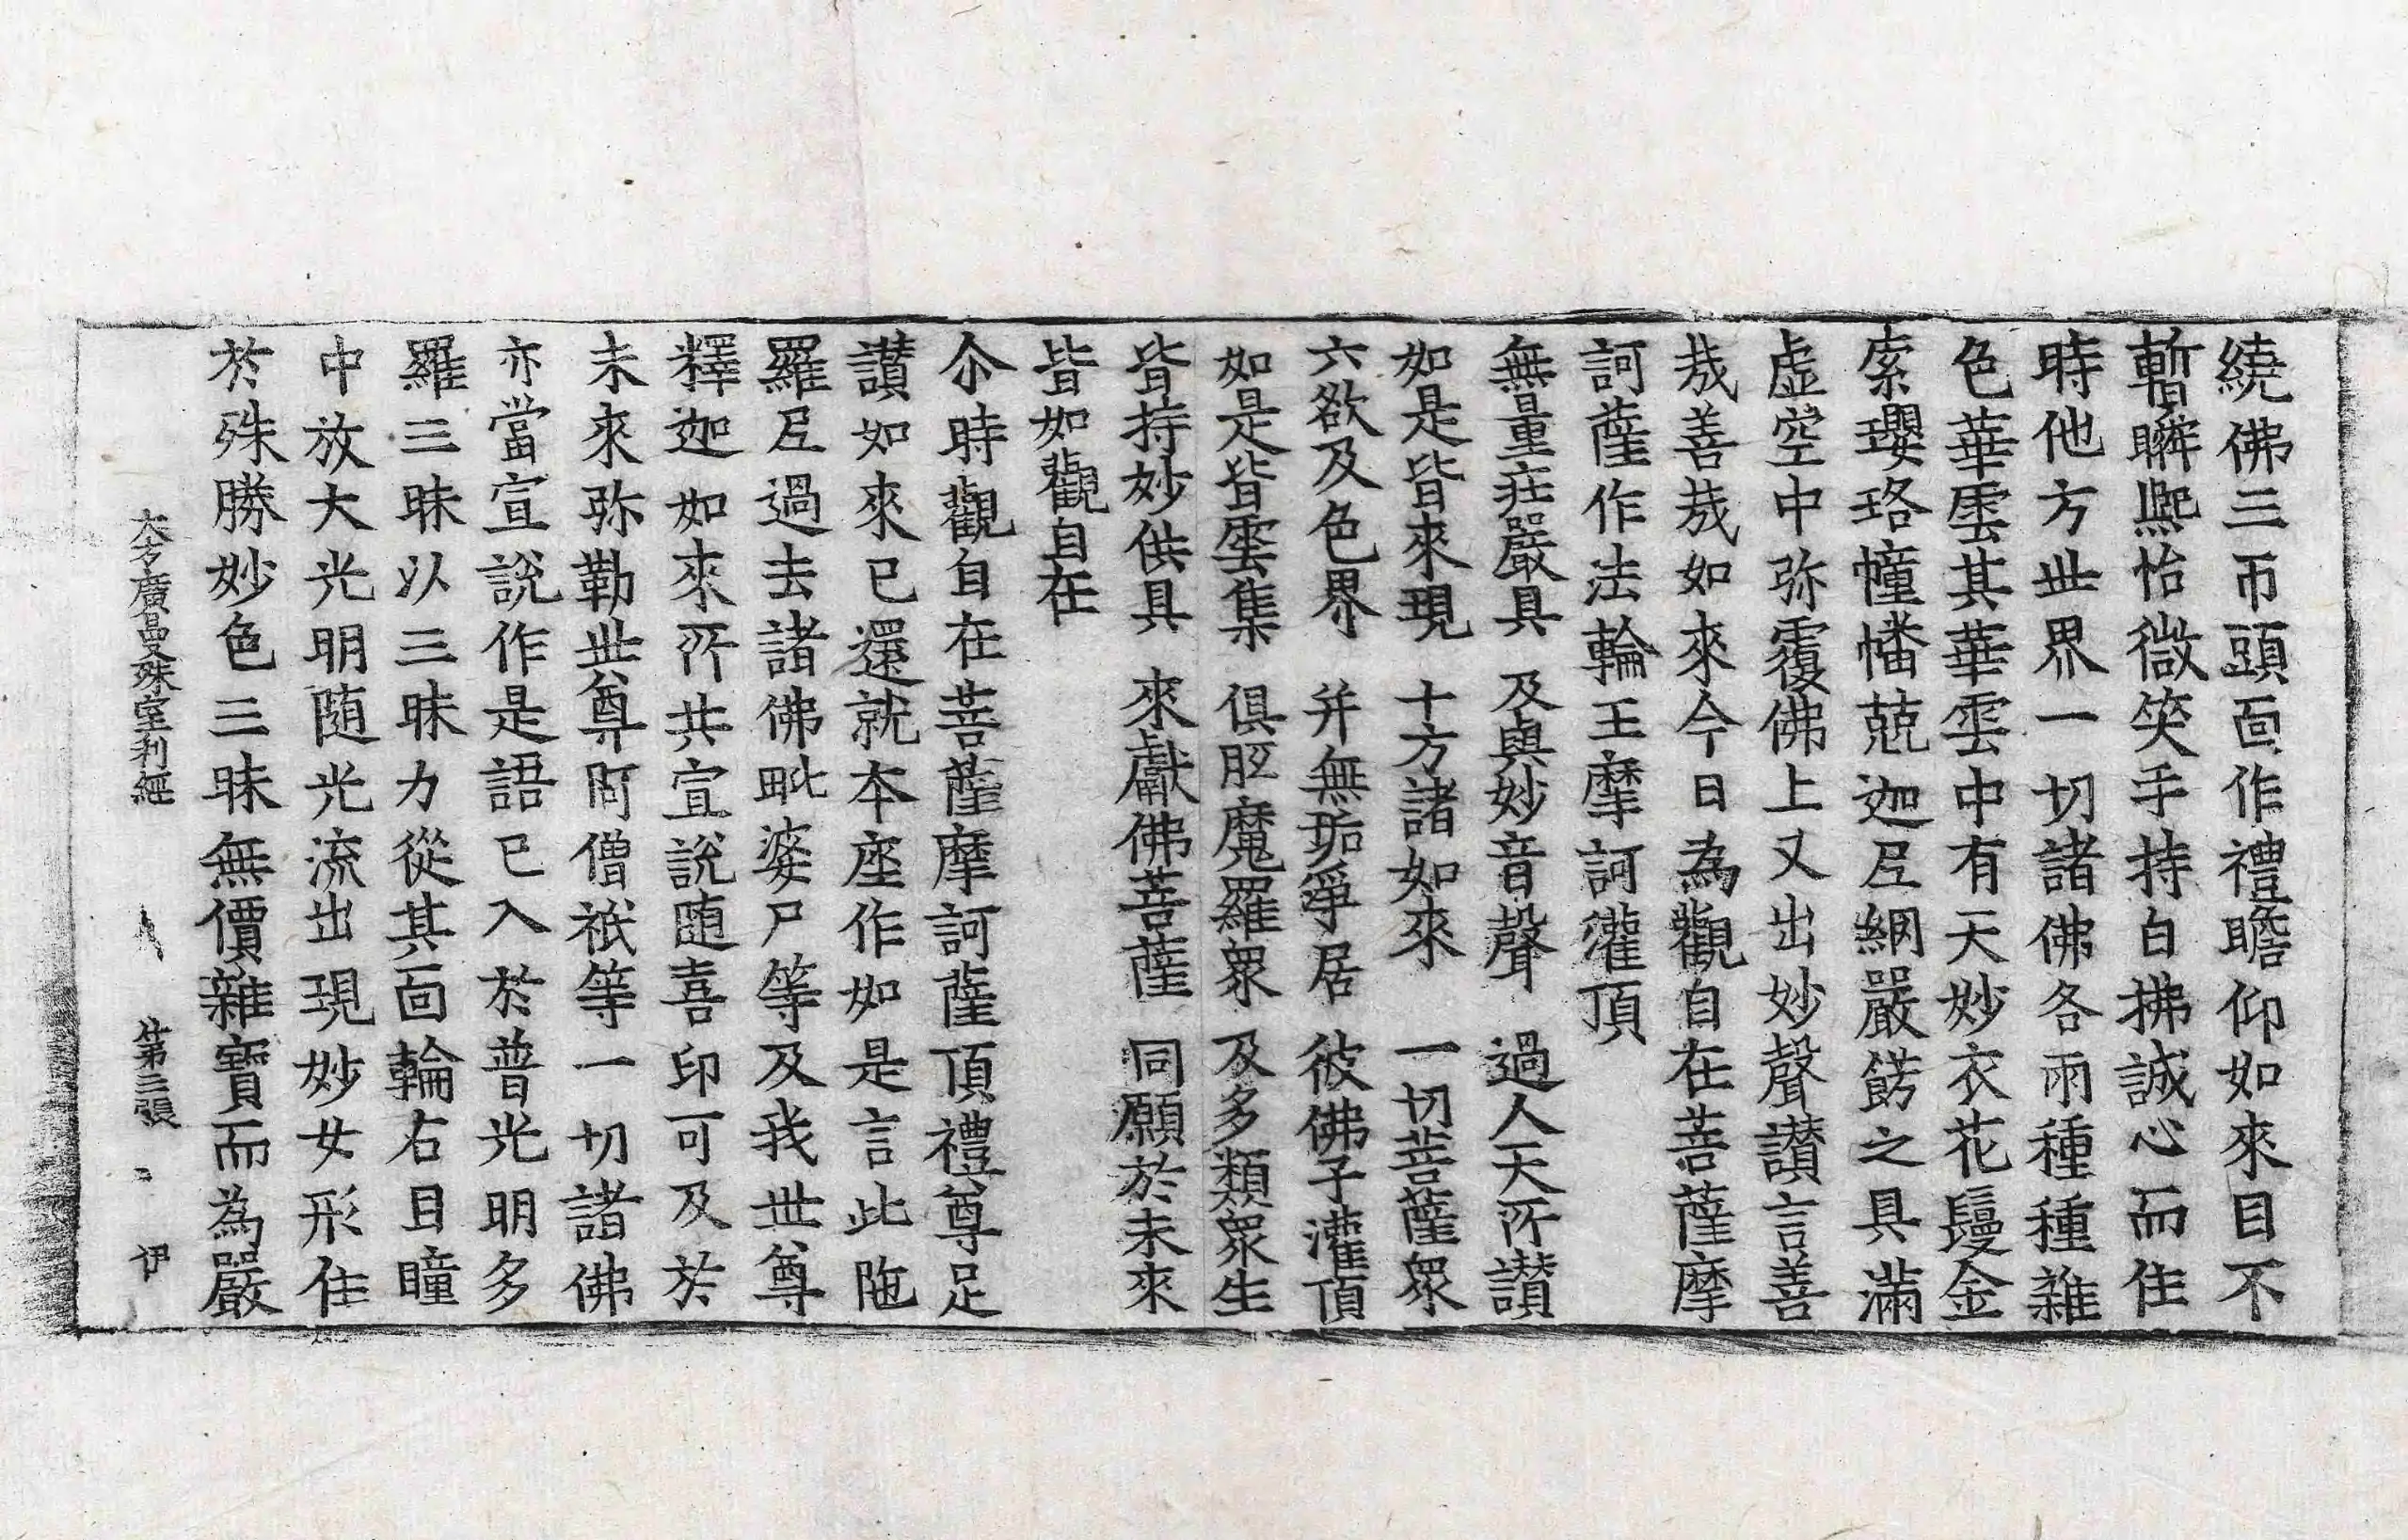 繞佛三帀頭面作禮瞻仰如來目不
暫瞬熙怡微笑手持白拂誠心而住
時他方世界一切諸佛各雨種種雜
色華雲其華雲中有天妙衣花鬘金
索瓔珞幢幡兢迦尼網嚴餝之具滿
虛空中弥覆佛上又出妙聲讃言善
哉善哉如來今日為觀自在菩薩摩
訶薩作法輪王摩訶灌頂
無量莊嚴具 及與妙音聲 過人天所讃
如是皆來現 十方諸如來 一切菩薩眾
六欲及色界 并無垢淨居 彼佛子灌頂
如是皆雲集 俱胝魔羅眾 及多類眾生
皆持妙供具 來獻佛菩薩 同願於未來
皆如觀自在
尒時觀自在菩薩摩訶薩頂禮尊足
讃如來已還就本座作如是言此陁
羅尼過去諸佛毗婆尸等及我世尊
釋迦如來所共宣說随喜印可及於
未來弥勒世尊阿僧祇等一切諸佛
亦當宣說作是語已入於普光明多
羅三昧以三昧力從其面輪右目瞳
中放大光明随光流出現妙女形住
於殊勝妙色三昧無價雜寶而為嚴
大方廣曼殊室利經 第三張 伊